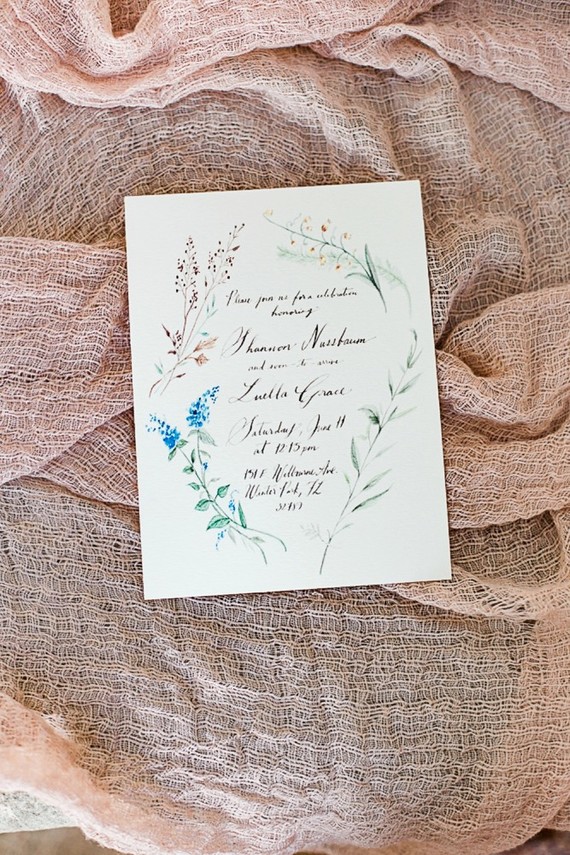 Please join us for a celebration
honoring
Shannon Nussbaum
and soon-to-arrive
Luella Grace
Saturday, June 11
at 12:15 pm
151 E Welbourne Ave.
Winter Park, FL
32789